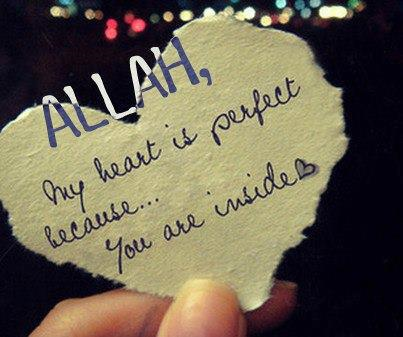 ALLAH,
My heart is perfect
because...
You are inside